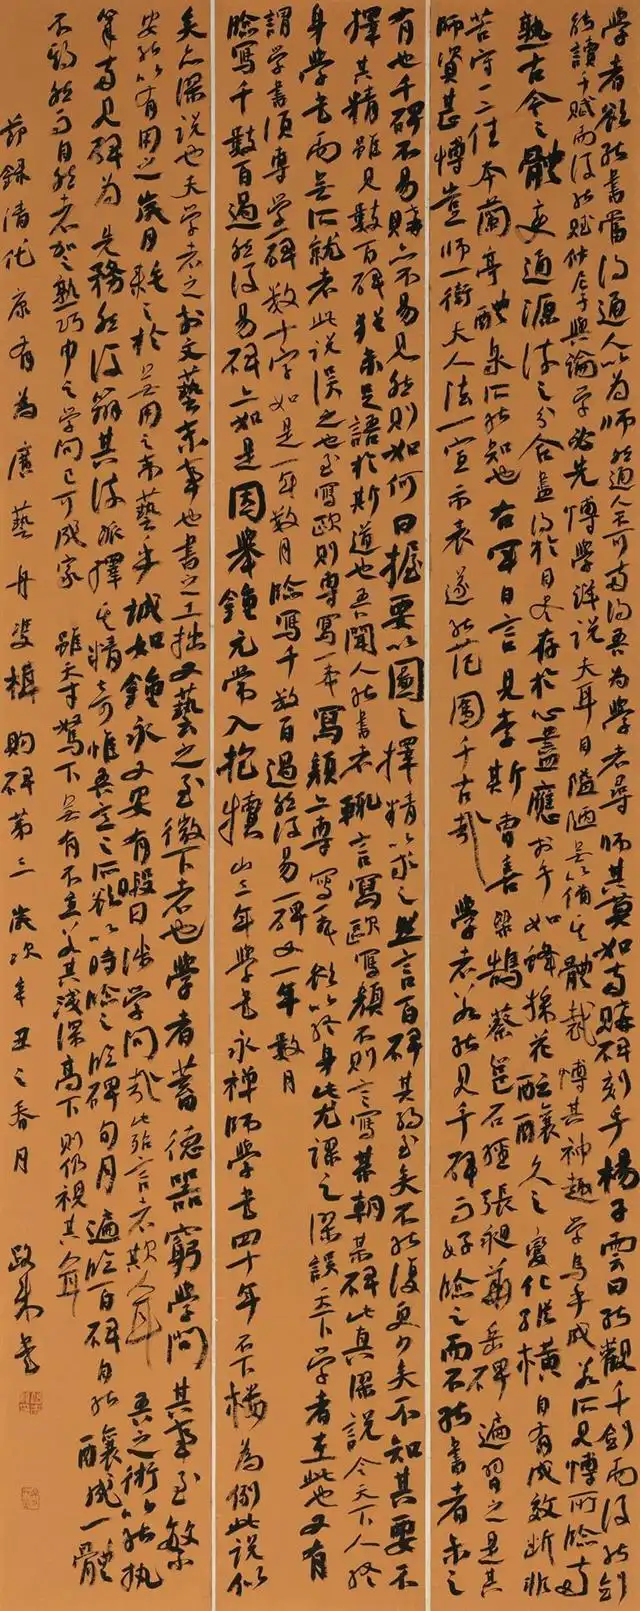 學者欲能書當得通人以為師然通人不可多得吾為學者尋師其莫如多購碑刻乎楊子雲曰能觀千劍而後能劍
能讀千賦而後能賦仲尼子輿論學必先博學詳說夫耳目隘陋無以備其體裁博其神趣學烏乎成若所見博所臨多
熟古今之體變通源流之分合盡得於目盡存於心盡應於手如蜂採花醞釀久之變化縱橫自有成效斷非
苦守一二佳本蘭亭醴泉所能知也右軍自言見李斯曹喜梁鵠蔡邕石經張昶華岳碑遍習之是其
師資甚博豈師一衛夫人法一宣示表遂能范圍千古哉學者若能見千碑而好臨之而不能書者未之
有也千碑不易購亦不易見然則如何曰握要以圖之擇精以求之然言百碑其約至矣不能復更少矣不知其要不
擇其精雖見數百碑猶未足語於斯道也吾聞人能書者輒言寫歐寫顏不則言寫某朝某碑此真謬說今天下人終
身學書而無所就者此說誤之也至寫歐則專寫一本寫顏亦專寫一本欲以終身此尤謬之深誤天下學者在此也又有
謂學書須專學一碑數十字如是一年數月臨寫千數百過然後易一碑又一年數月
臨寫千數百過然後易碑亦如是因舉鍾元常入抱犢山三年學書永禪師學書四十年不下樓為例此說似
矣亦謬說也夫學者之於文藝末事也書之工拙又藝之至微下者也學者蓄德器窮學問其事至繁
安能以有用之歲月耗之於無用之末藝乎誠如鍾永又安有暇日涉學問哉此殆言者欺人耳吾之術以能執
筆多見碑為先務然後辨其流派擇其精奇惟吾意之所欲以時臨之臨碑旬月遍臨百碑自能釀成一體
不期然而自然者加之熟巧申之學問已可成家雖天才駑下無有不立若其淺深高下則仍視其人耳
節錄清代康有為廣藝舟雙楫購碑第三歲次辛丑之春月